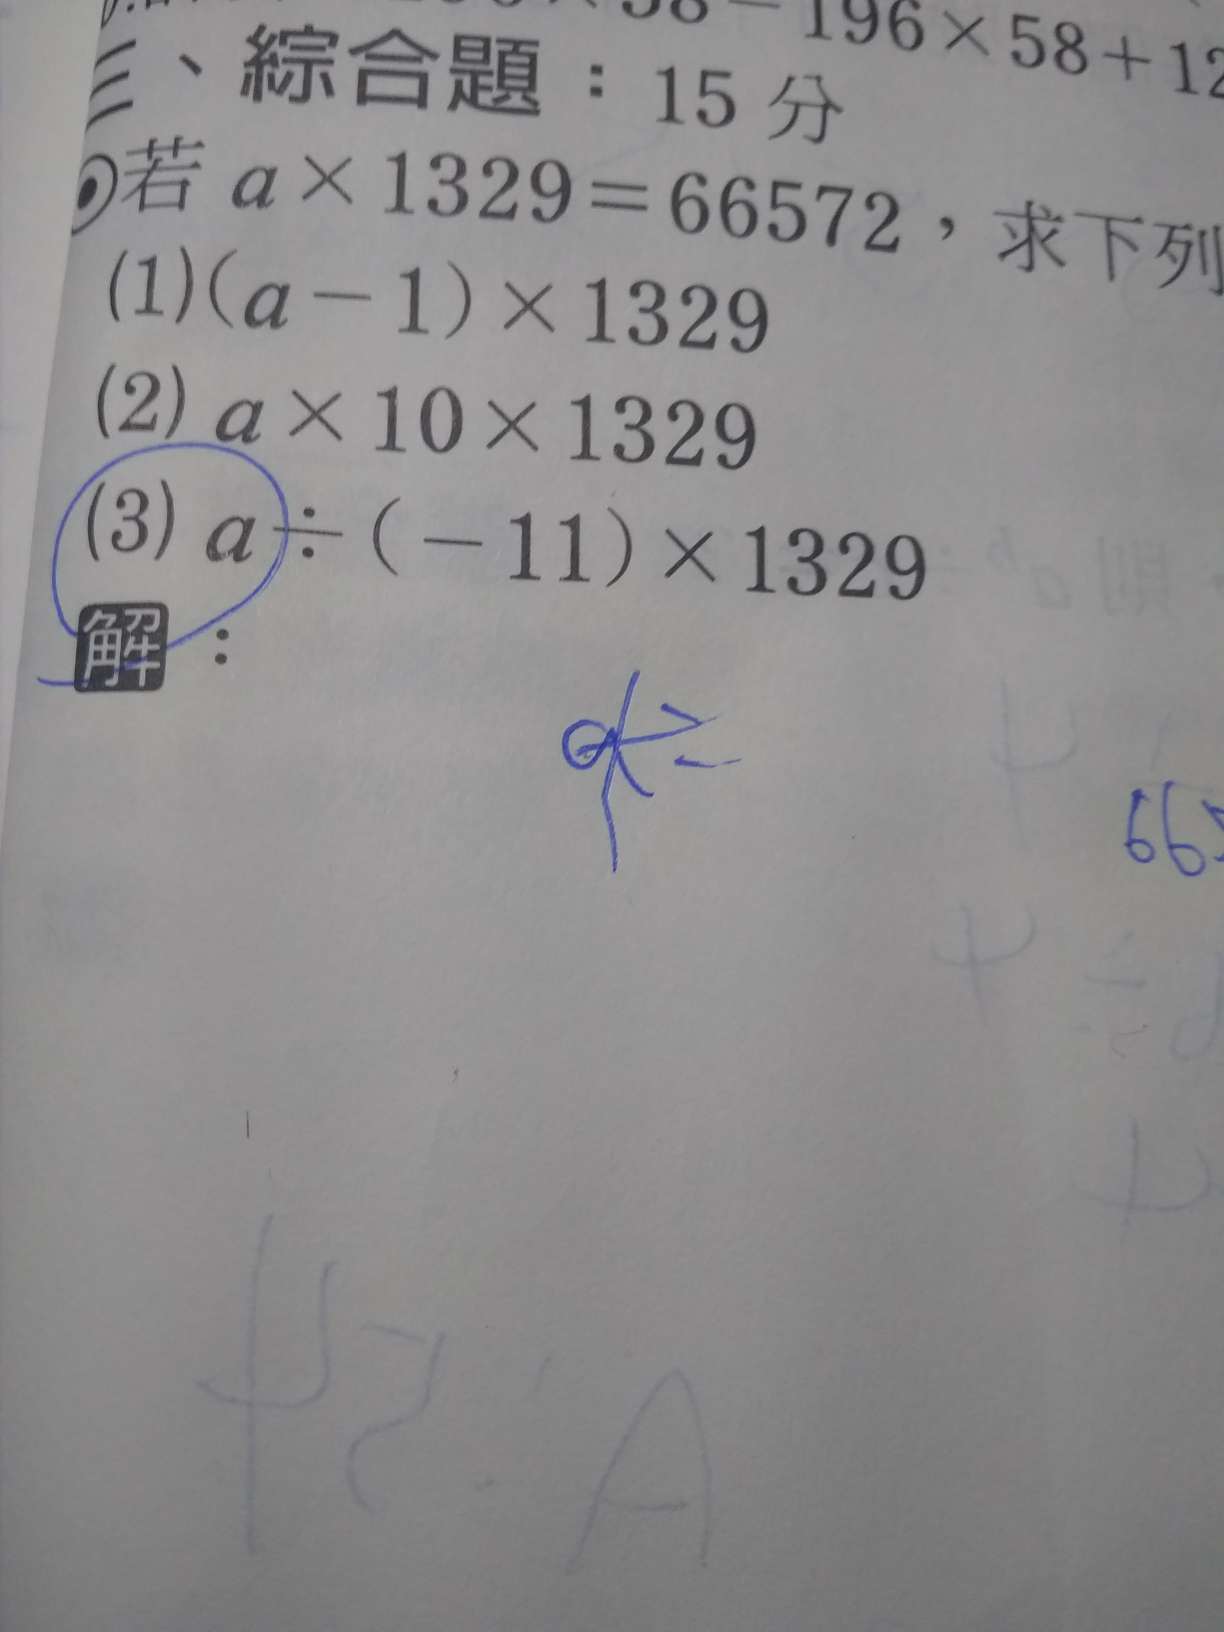 58－196×58＋12
三、綜合題：15 分
若 a×1329＝66572，求下列
(1)(a－1)×1329
(2) a×10×1329
(3) a÷(－11)×1329
解：
66